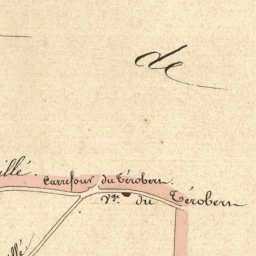 de
illé.
Carrefour du Térobern.
Vge. du Térobern
illé